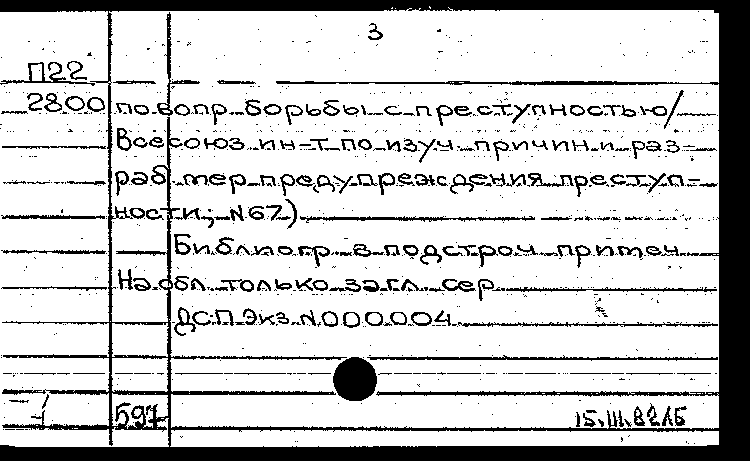 3
П22
2800 по вопр. борьбы с преступностью/
Всесоюз. ин-т по изуч. причин и раз-
раб. мер предупреждения преступ-
ности; №67)
Библиогр. в подстроч. примеч.
На обл. только загл. сер.
ДСП Экз. №000004
597 15.III.82